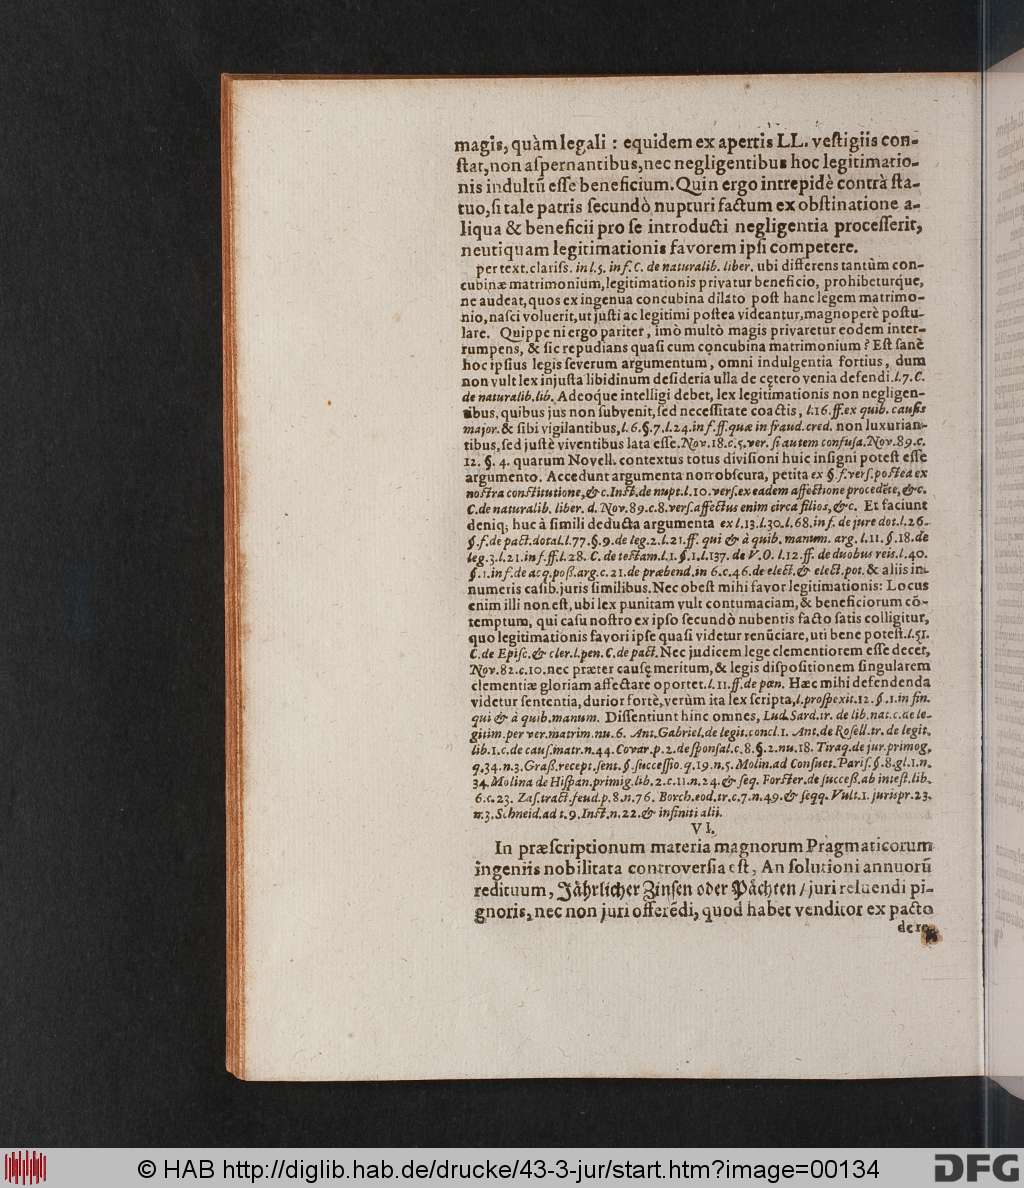 magis, quàm legali : equidem ex apertis LL. vestigiis con-
stat, non aspernantibus, nec negligentibus hoc legitimatio-
nis indultū esse beneficium. Quin ergo intrepidè contrà sta-
tuo, si tale patris secundò nupturi factum ex obstinatione a-
liqua & beneficii pro se introducti negligentia processerit,
neutiquam legitimationis favorem ipsi competere.
per text. clariss. in l. 5. in f. C. de naturalib. liber. ubi differens tantùm con-
cubinæ matrimonium, legitimationis privatur beneficio, prohibeturque,
ne audeat, quos ex ingenua concubina dilato post hanc legem matrimo-
nio, nasci voluerit, ut justi ac legitimi postea videantur, magnoperè postu-
lare. Quippe ni ergo pariter, imò multò magis privaretur eodem inter-
rumpens, & sic repudians quasi cum concubina matrimonium? Est sanè
hoc ipsius legis severum argumentum, omni indulgentia fortius, dum
non vult lex injusta libidinum desideria ulla de cętero venia defendi. l. 7. C.
de naturalib. lib. Adeoque intelligi debet, lex legitimationis non negligen-
tibus, quibus jus non subvenit, sed necessitate coactis, l. 16. ff. ex quib. causis
major. & sibi vigilantibus, l. 6. §. 7. l. 24. in f. ff. quæ in fraud. cred. non luxurian-
tibus, sed justè viventibus lata esse. Nov. 18. c. 5. ver. si autem confusa. Nov. 89. c.
12. §. 4. quarum Novell. contextus totus divisioni huic insigni potest esse
argumento. Accedunt argumenta non obscura, petita ex §. f. vers. postea ex
nostra constitutione, &c. Inst. de nupt. l. 10. vers. ex eadem affectione procedēte, &c.
C. de naturalib. liber. d. Nov. 89. c. 8. vers. affectus enim circa filios, &c. Et faciunt
deniq; huc à simili deducta argumenta ex l. 13. l. 30. l. 68. in f. de jure dot. l. 26.
§. f. de pact. dotal. l. 77. §. 9. de leg. 2. l. 21. ff. qui & à quib. manum. arg. l. 11. §. 18. de
leg. 3. l. 21. in f. ff. l. 28. C. de testam. l. 1. §. 1. l. 137. de V. O. l. 12. ff. de duobus reis. l. 40.
§. 1. in f. de acq. poß. arg. c. 21. de præbend. in 6. c. 46. de elect. & elect. pot. & aliis in-
numeris casib. juris similibus. Nec obest mihi favor legitimationis: Locus
enim illi non est, ubi lex punitam vult contumaciam, & beneficiorum cō-
temptum, qui casu nostro ex ipso secundò nubentis facto satis colligitur,
quo legitimationis favori ipse quasi videtur renūciare, uti bene potest. l. 51.
C. de Episc. & cler. l. pen. C. de pact. Nec judicem lege clementiorem esse decet,
Nov. 82. c. 10. nec præter causę meritum, & legis dispositionem singularem
clementiæ gloriam affectare oportet. l. 11. ff. de pœn. Hæc mihi defendenda
videtur sententia, durior fortè, verùm ita lex scripta, l. prospexit. 12. §. 1. in fin.
qui & à quib. manum. Dissentiunt hinc omnes, Lud. Sard. tr. de lib. nat. c. de le-
gitim. per ver. matrim. nu. 6. Ant. Gabriel. de legit. concl. 1. Ant. de Rosell. tr. de legit.
lib. 1. c. de caus. matr. n. 44. Covar. p. 2. de sponsal. c. 8. §. 2. nu. 18. Tiraq. de jur. primog.
q. 34. n. 3. Graß. recept. sent. §. successio. q. 19. n. 5. Molin. ad Consuet. Paris. §. 8. gl. 1. n.
34. Molina de Hispan. primig. lib. 2. c. 11. n. 24. & seq. Forster. de succeß. ab intest. lib.
6. c. 23. Zas. tract. feud. p. 8. n. 76. Borch. eod. tr. c. 7. n. 49. & seqq. Vult. 1. jurispr. 23.
n. 3. Schneid. ad t. 9. Inst. n. 22. & infiniti alii.
VI.
In præscriptionum materia magnorum Pragmaticorum
ingeniis nobilitata controversia est, An solutioni annuorū
redituum, Jährlicher Zinsen oder Pächten / juri reluendi pi-
gnoris, nec non juri offerēdi, quod habet venditor ex pacto
de re-
© HAB http://diglib.hab.de/drucke/43-3-jur/start.htm?image=00134
DFG